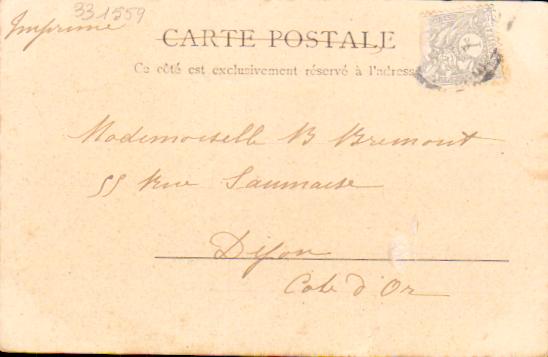 33 1559
Imprimé
CARTE POSTALE
Ce côté est exclusivement réservé à l'adresse
Mademoiselle B Bremont
55 Rue Saumaise
Dijon
Cote d'Or